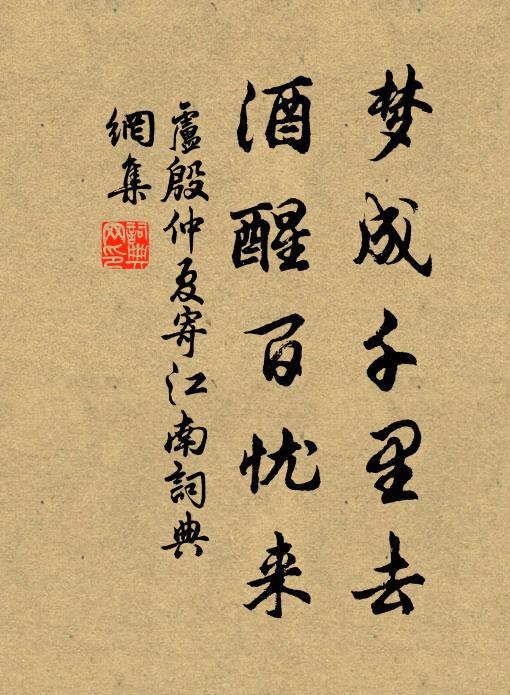 梦成千里去
酒醒百忧来
盧殷仲夏寄江南詞典
網集
詞典
网印